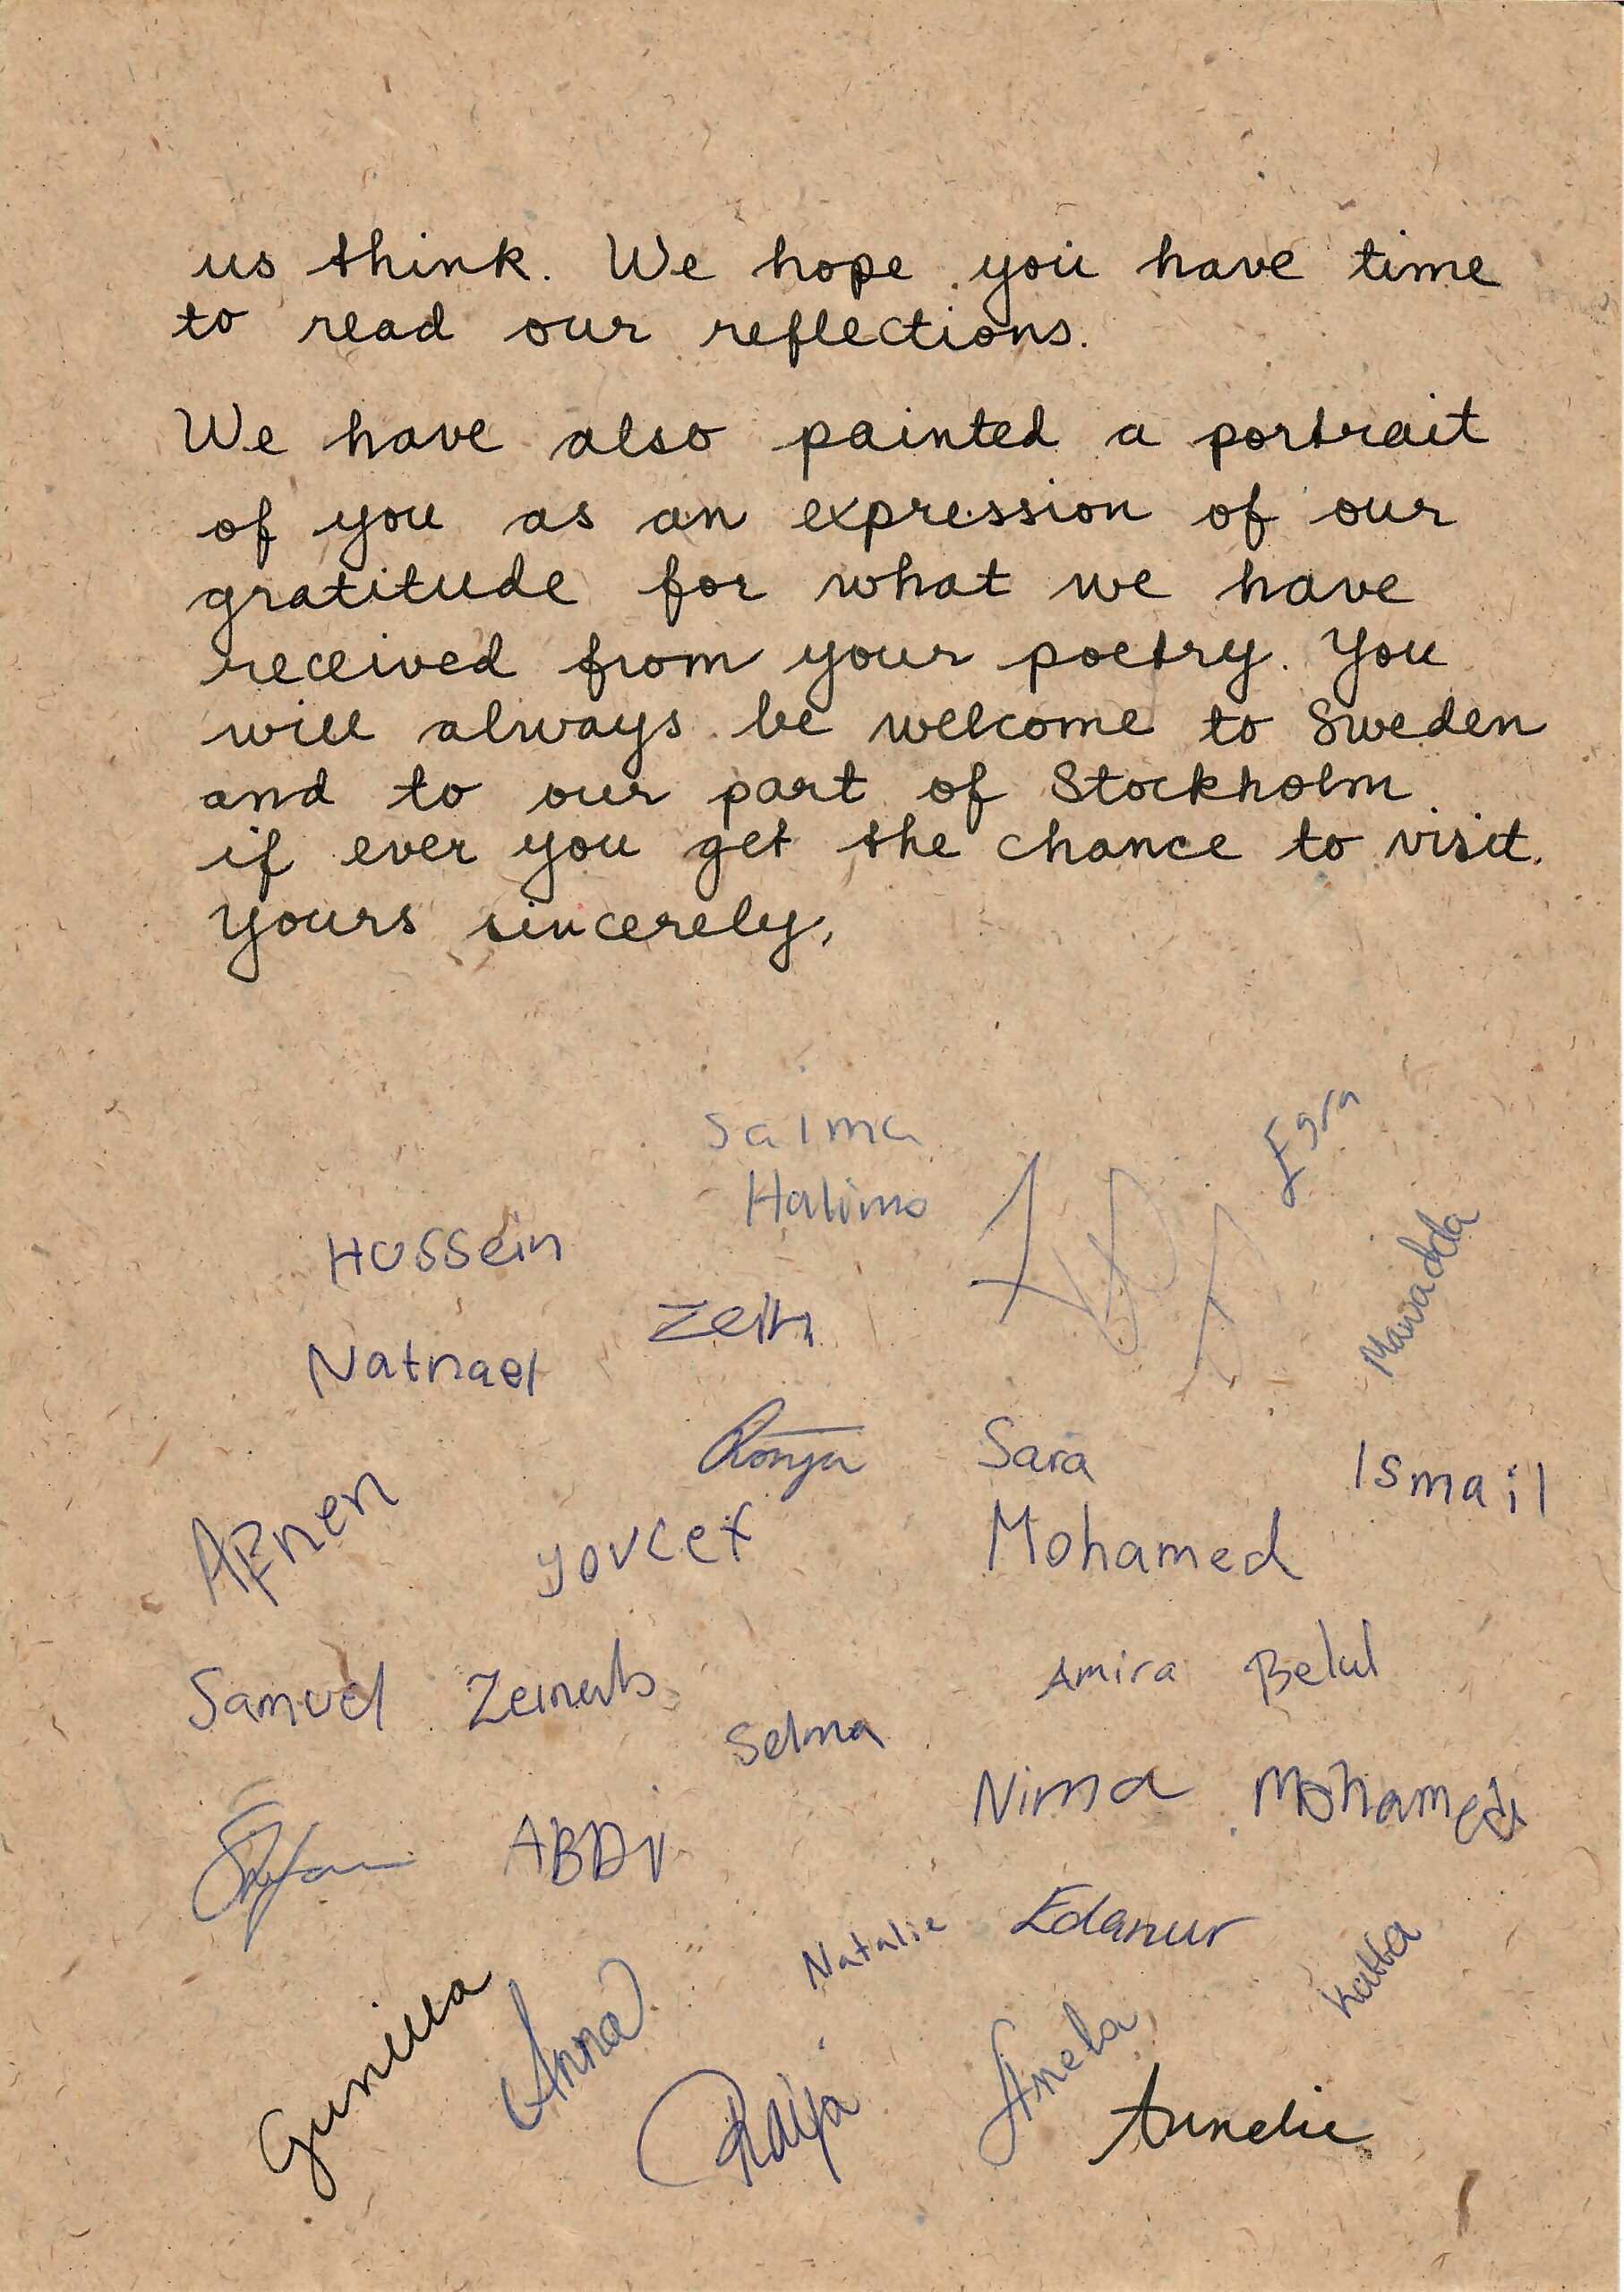 us think. We hope you have time
to read our reflections.
We have also painted a portrait
of you as an expression of our
gratitude for what we have
received from your poetry. You
will always be welcome to Sweden
and to our part of Stockholm
if ever you get the chance to visit.
Yours sincerely,
Salma
Egra
Halimo
Hussein
Mawadda
Natnael
Ronja
Sara
Ismail
AFnen
Mohamed
Samuel Zeinab
Amira Belul
Selma
Nima Mohamed
ABDI
Natalie Edanur
Katta
Gunilla
Anna
Raija
Anela
Annelie